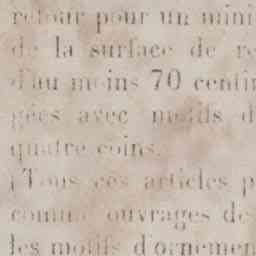 retour pour un mini
de la surface de re
d'au moins 70 centi
gées avec motifs d
quatre coins.
(Tous ces articles p
comme ouvrages de
les motifs d'ornemen